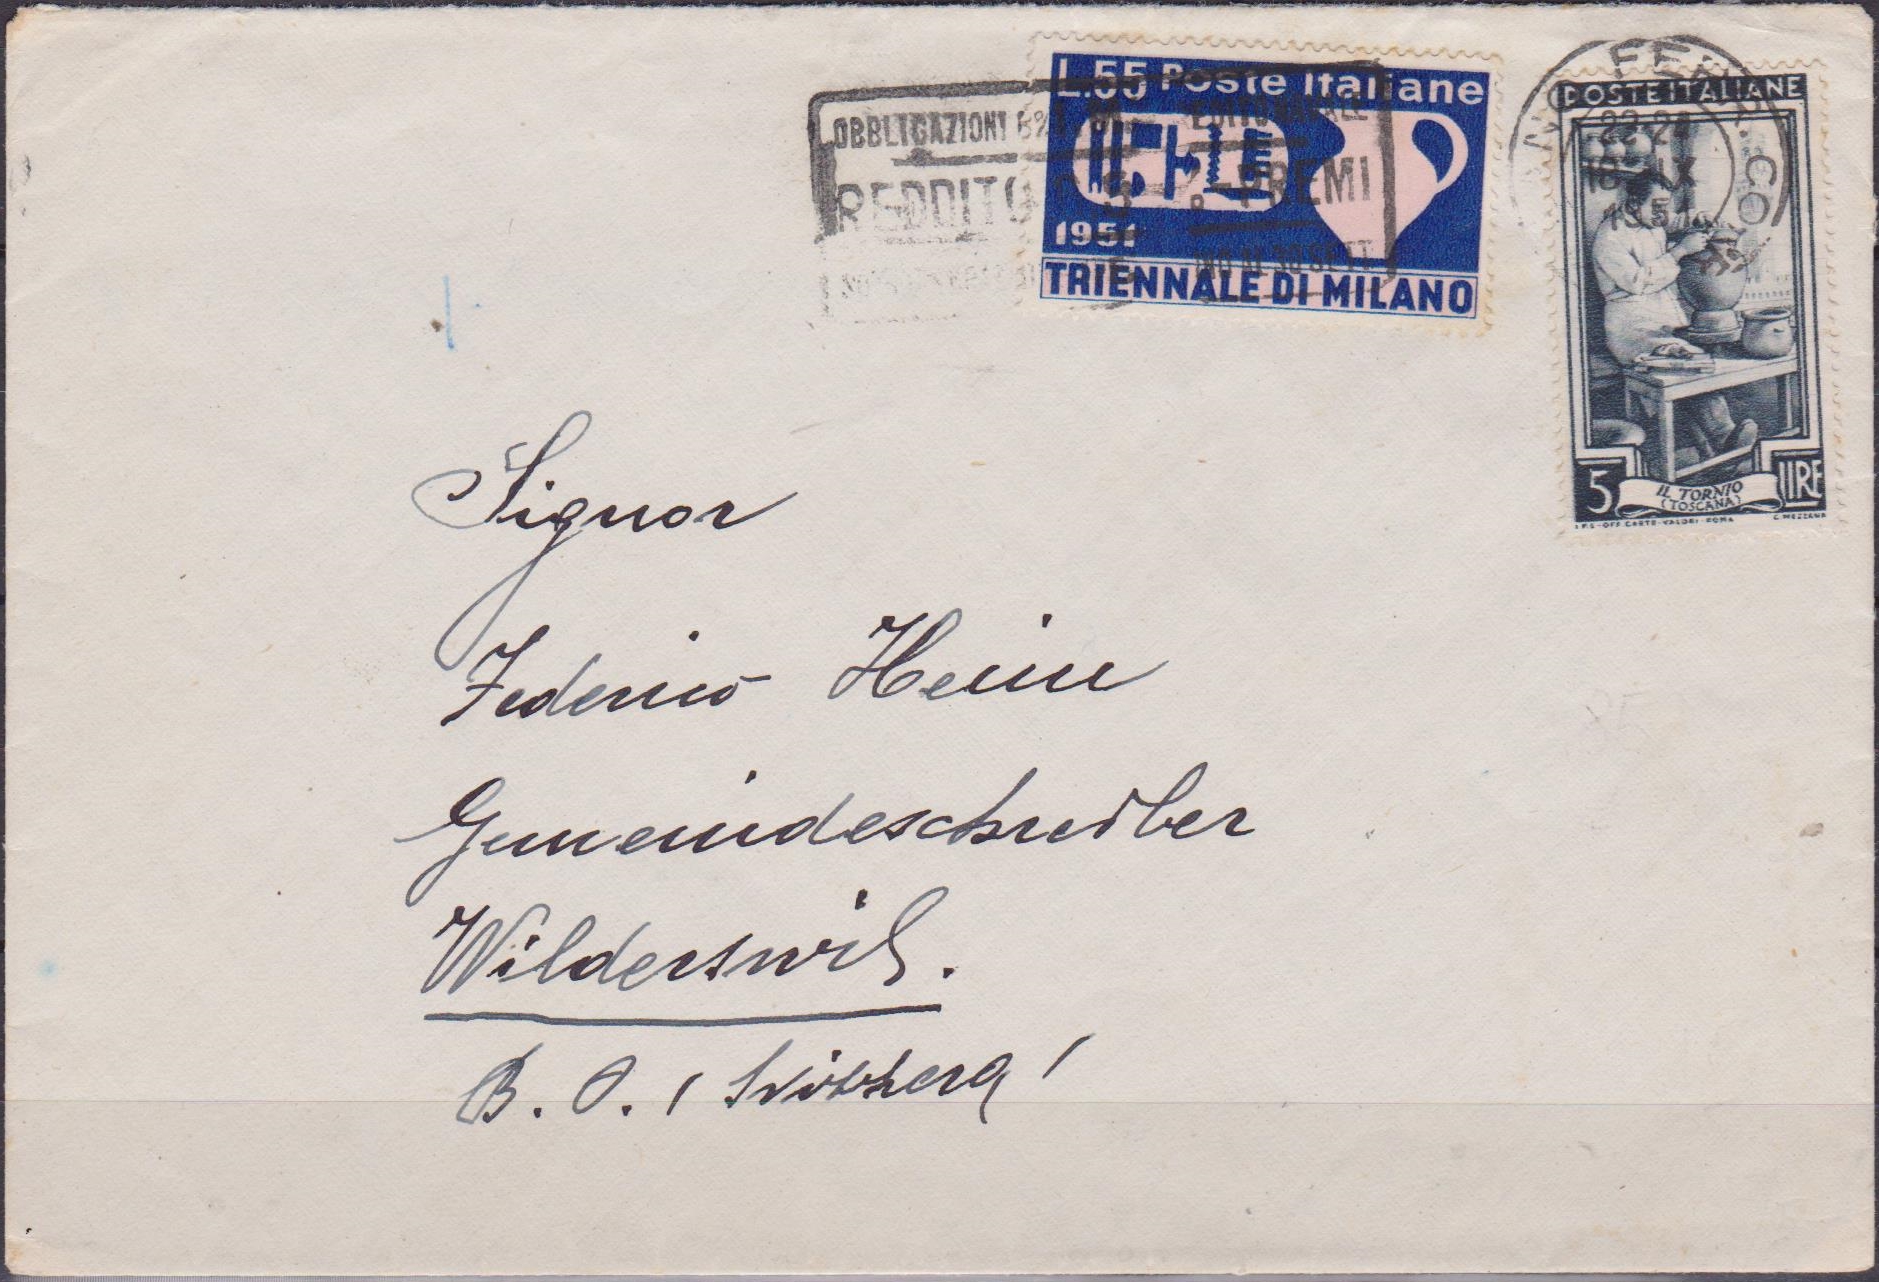 L.55 Poste Italiane
1951
TRIENNALE DI MILANO
OBBLIGAZIONI 6%
REDDITO
PREMI
POSTE ITALIANE
22-2
IX
1951
5 LIRE
IL TORNIO
(TOSCANA)
I.P.S-OFF. CARTE-VALORI-ROMA C. MEZZANA
Signor
Federico Heim
Gemeindeschreiber
Wilderswil.
B. O. (Svizzera)